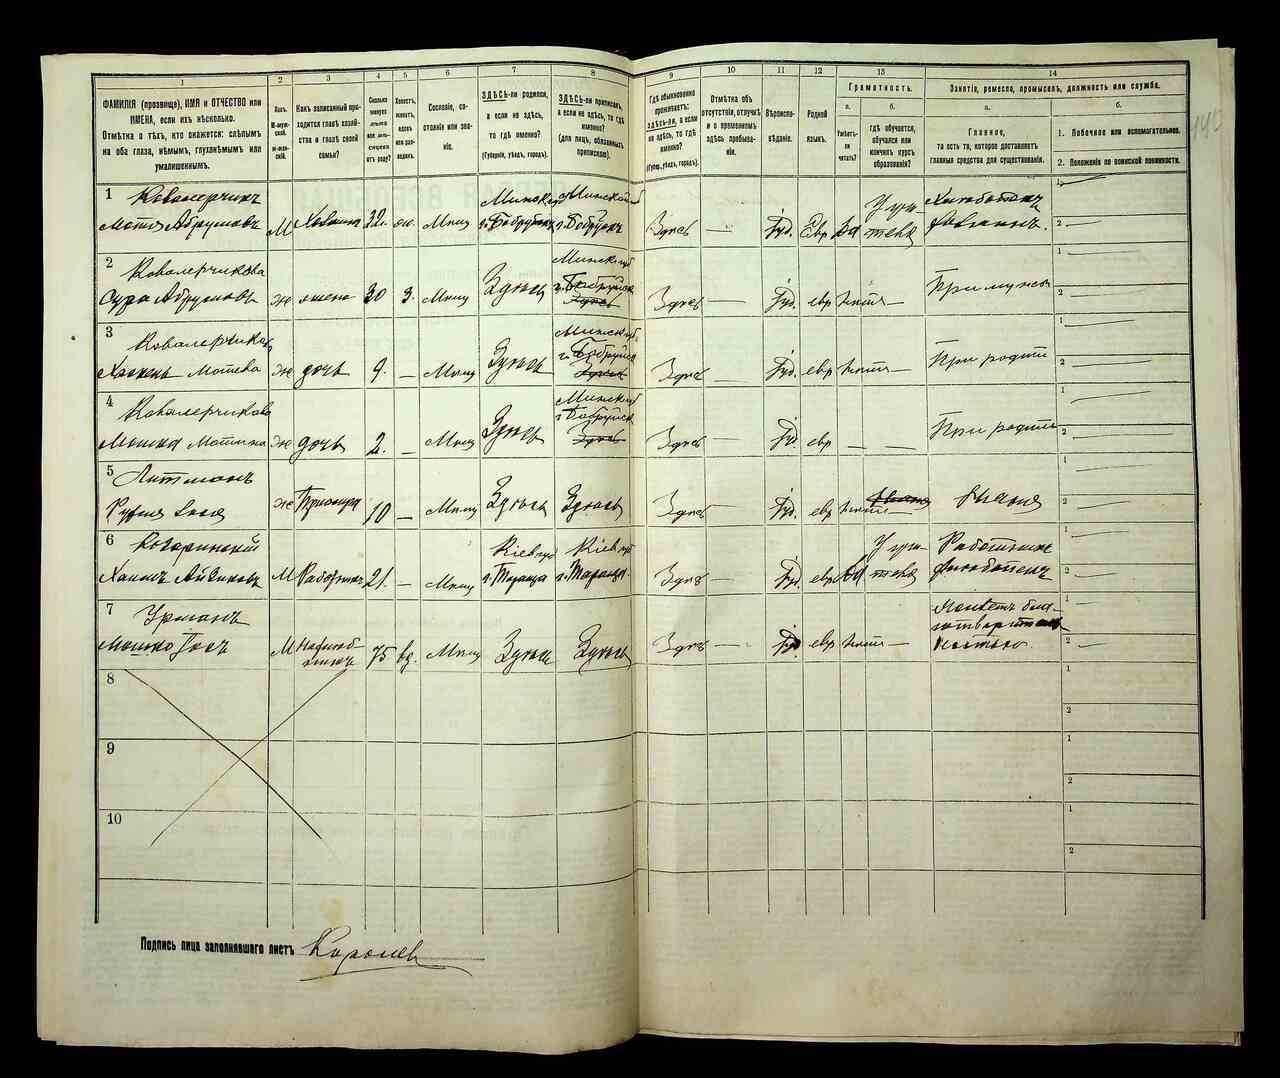 1 2 3 4 5 6 7 8 9 10 11 12 13 14
ФАМИЛІЯ (прозвище), ИМЯ и ОТЧЕСТВО или
ИМЕНА, если ихъ нѣсколько.
Отмѣтка о тѣхъ, кто окажется: слѣпымъ
на оба глаза, нѣмымъ, глухонѣмымъ или
умалишеннымъ.
Полъ.
М-муж-
ской.
Ж-жен-
скій.
Какъ записанный при-
ходится главѣ хозяй-
ства и главѣ своей
семьи?
Сколько
минуло
лѣтъ
или мѣ-
сяцевъ
отъ роду?
Холостъ,
женатъ,
вдовъ
или раз-
веденъ.
Сословіе, со-
стояніе или зва-
ніе.
ЗДѢСЬ-ли родился,
а если не здѣсь,
то гдѣ именно?
(Губернія, уѣздъ, городъ).
ЗДѢСЬ-ли приписанъ,
а если не здѣсь, то гдѣ
именно?
(для лицъ, обязанныхъ
припискою).
Гдѣ обыкновенно
проживаетъ:
здѣсь-ли, а если
не здѣсь, то гдѣ
именно?
(Губер., уѣздъ, городъ).
Отмѣтка объ
отсутствіи, отлучкѣ
и о временномъ
здѣсь пребыва-
ніи.
Вѣроиспо-
вѣданіе.
Родной
языкъ.
Грамотность.
а.
Умѣетъ-
ли
читать?
б.
гдѣ обучается,
обучался или
кончилъ курсъ
образованія?
Занятіе, ремесло, промыселъ, должность или служба.
а.
Главное,
то есть то, которое доставляетъ
главныя средства для существованія.
б.
1. Побочное или вспомогательное.
2. Положеніе по воинской повинности.
1 Ковалерчикъ
Мотя Абрумовъ М Хозяинъ 32 ж. Мѣщ Минской г. Бобруйскъ Минской г. Бобруйскъ Здѣсь — Іуд. Евр Да У учителя
2 Ковалерчикова
Сура Абрумовъ ж жена 30 з. Мѣщ Здѣсь Минск губ г. Бобруйск Здѣсь Здѣсь — Іуд. евр нѣтъ — При мужѣ
3 Ковалерчикова
Мотева ж дочь 9. — Мѣщ Здѣсь Минск губ. г. Бобруйск Здѣсь Здѣсь — Іуд. евр нѣтъ — При родит
4 Ковалерчикова
ж дочь 2. — Мѣщ Здѣсь Минской г. Бобруйск Здѣсь Здѣсь — Іуд. евр — — При родит
5 Литманъ
ж 10 — Мѣщ Здѣсь Здѣсь Здѣсь — Іуд. евр нѣтъ —
6
Хаимъ М Работникъ 21. — Мѣщ Кіев губ г. Тараща Кіев губ г. Тараща Здѣсь — Іуд. евр Да У учителя Работникъ
7 Урманъ
Мошко М 75 вд. Мѣщ Здѣсь Здѣсь Здѣсь — Іуд евр нѣтъ — Живетъ благотворительностью.
8
9
10
Подпись лица заполнявшаго листъ Королев